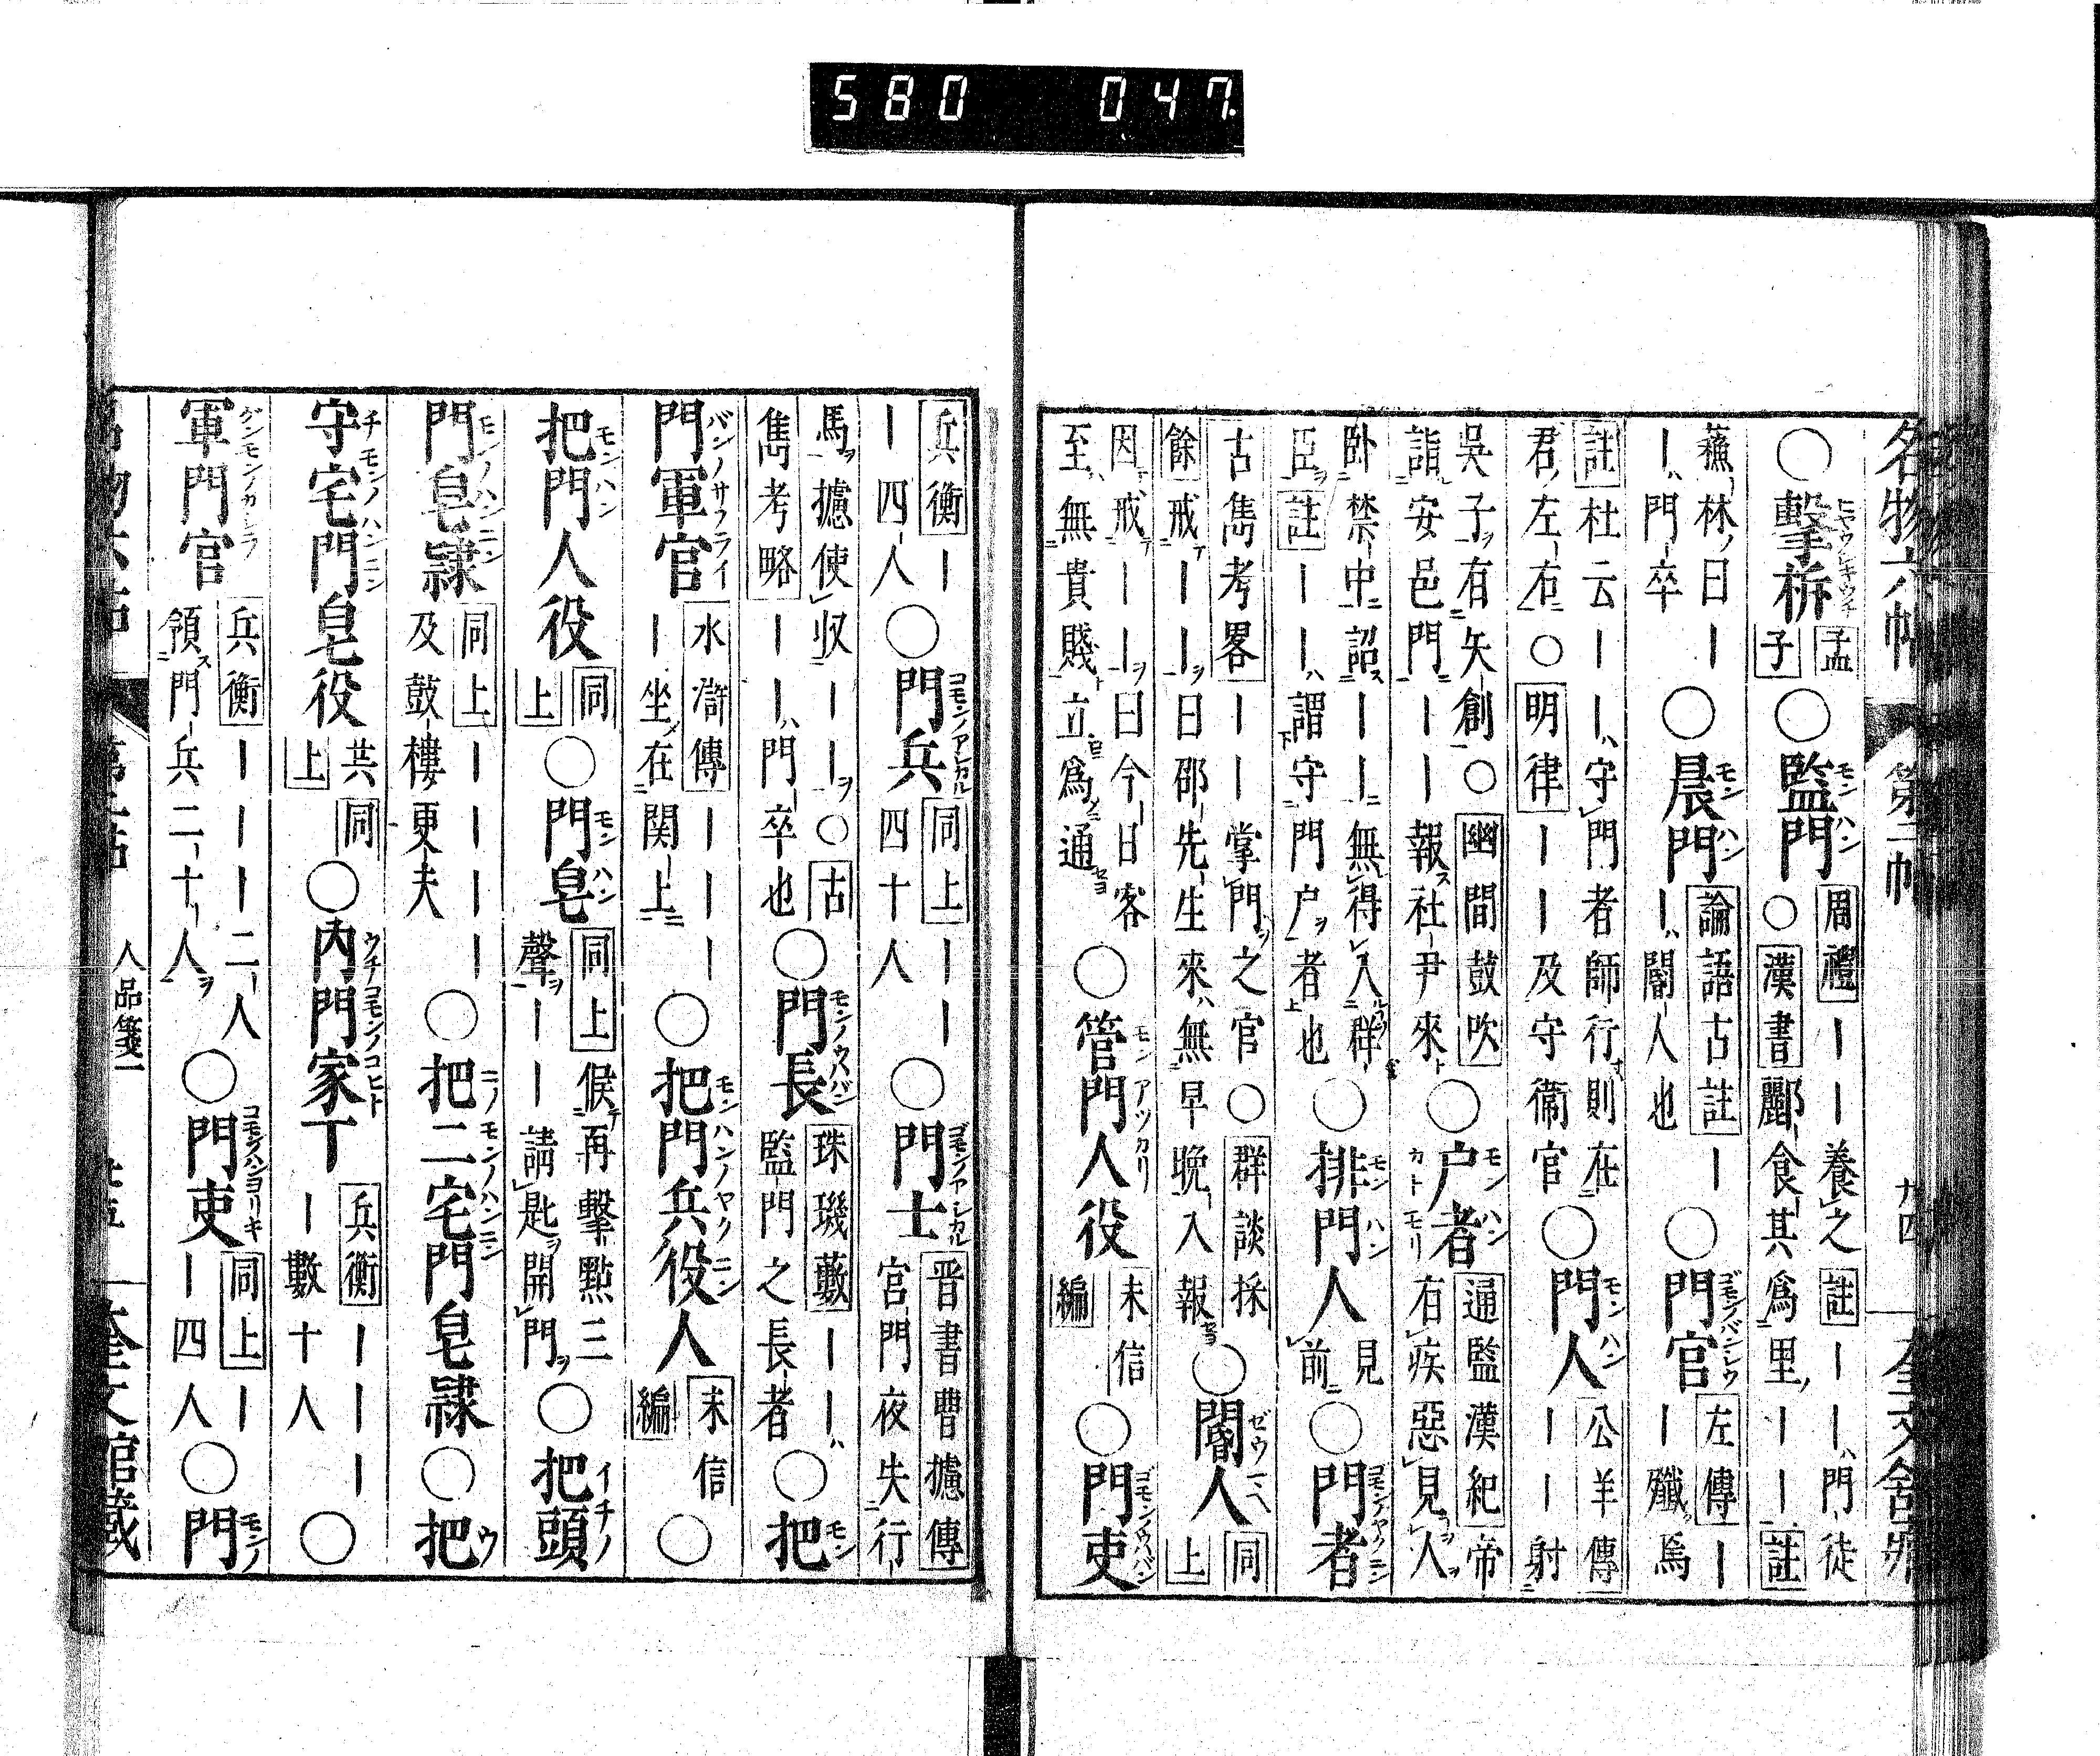 580 047.
名物六帖 第二帖 廿四 奎文舘藏
○擊柝 孟子 ○監門 周禮 ｜｜養之 註 ｜｜門徒 ○ 漢書 酈食其爲里｜｜ 註
蘇林曰｜｜門卒 ○晨門 論語古註 ｜｜閽人也 ○門官 左傳 ｜｜殲焉
註 杜云｜｜守門者師行則在君左右 ○ 明律 ｜｜｜及守衞官 ○門人 公羊傳 ｜｜射
吳子有矢創 ○ 幽間鼓吹 詣安邑門｜｜｜報社尹來 ○户者 通鑑漢紀 帝有疾惡見人
卧禁中詔｜｜無得入群臣 註 ｜｜謂守門户者也 ○排門人 見前 ○門者
古雋考畧 ｜｜掌門之官 ○ 群談採餘 戒｜｜曰邵先生來無早晚入報 ○閽人 同上
因戒｜｜曰今日客至無貴賤立爲通 ○管門人役 未信編 ○門吏
兵衡 ｜｜四人 ○門兵 同上 ｜｜四十人 ○門士 晋書曹攄傳 宮門夜失行
馬攄使収｜｜ ○ 古雋考略 ｜｜｜門卒也 ○門長 珠璣藪 ｜｜監門之長者 ○把
門軍官 水滸傳 ｜｜｜｜坐在関上 ○把門兵役人 未信編 ○
把門人役 同上 ○門皂 同上 候再擊點三聲｜｜請匙開門 ○把頭
門皂隸 同上 ｜｜｜｜及鼓樓更夫 ○把二宅門皂隸 ○把
守宅門皂役 共同上 ○內門家丁 兵衡 ｜｜｜｜數十人 ○
軍門官 兵衡 ｜｜｜二人領門兵二十人 ○門吏 同上 ｜｜四人 ○門
名物六帖 第二帖 人品箋一 奎文舘藏